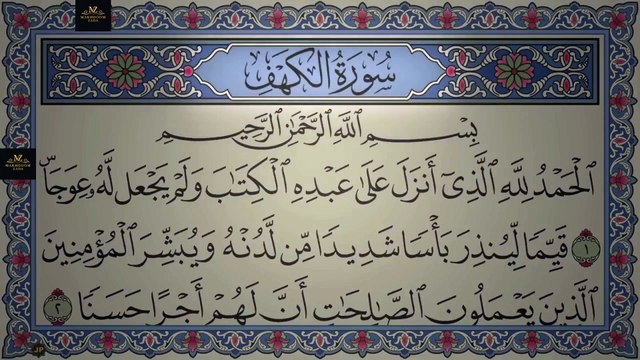 MAKHDOOM
ZADA
سُورَةُ الكَهْفِ
بِسْمِ ٱللَّهِ ٱلرَّحْمَٰنِ ٱلرَّحِيمِ
MAKHDOOM
ZADA
ٱلْحَمْدُ لِلَّهِ ٱلَّذِىٓ أَنزَلَ عَلَىٰ عَبْدِهِ ٱلْكِتَٰبَ وَلَمْ يَجْعَل لَّهُۥ عِوَجَاۜ
١ قَيِّمًا لِّيُنذِرَ بَأْسًا شَدِيدًا مِّن لَّدُنْهُ وَيُبَشِّرَ ٱلْمُؤْمِنِينَ
ٱلَّذِينَ يَعْمَلُونَ ٱلصَّٰلِحَٰتِ أَنَّ لَهُمْ أَجْرًا حَسَنًا ٢